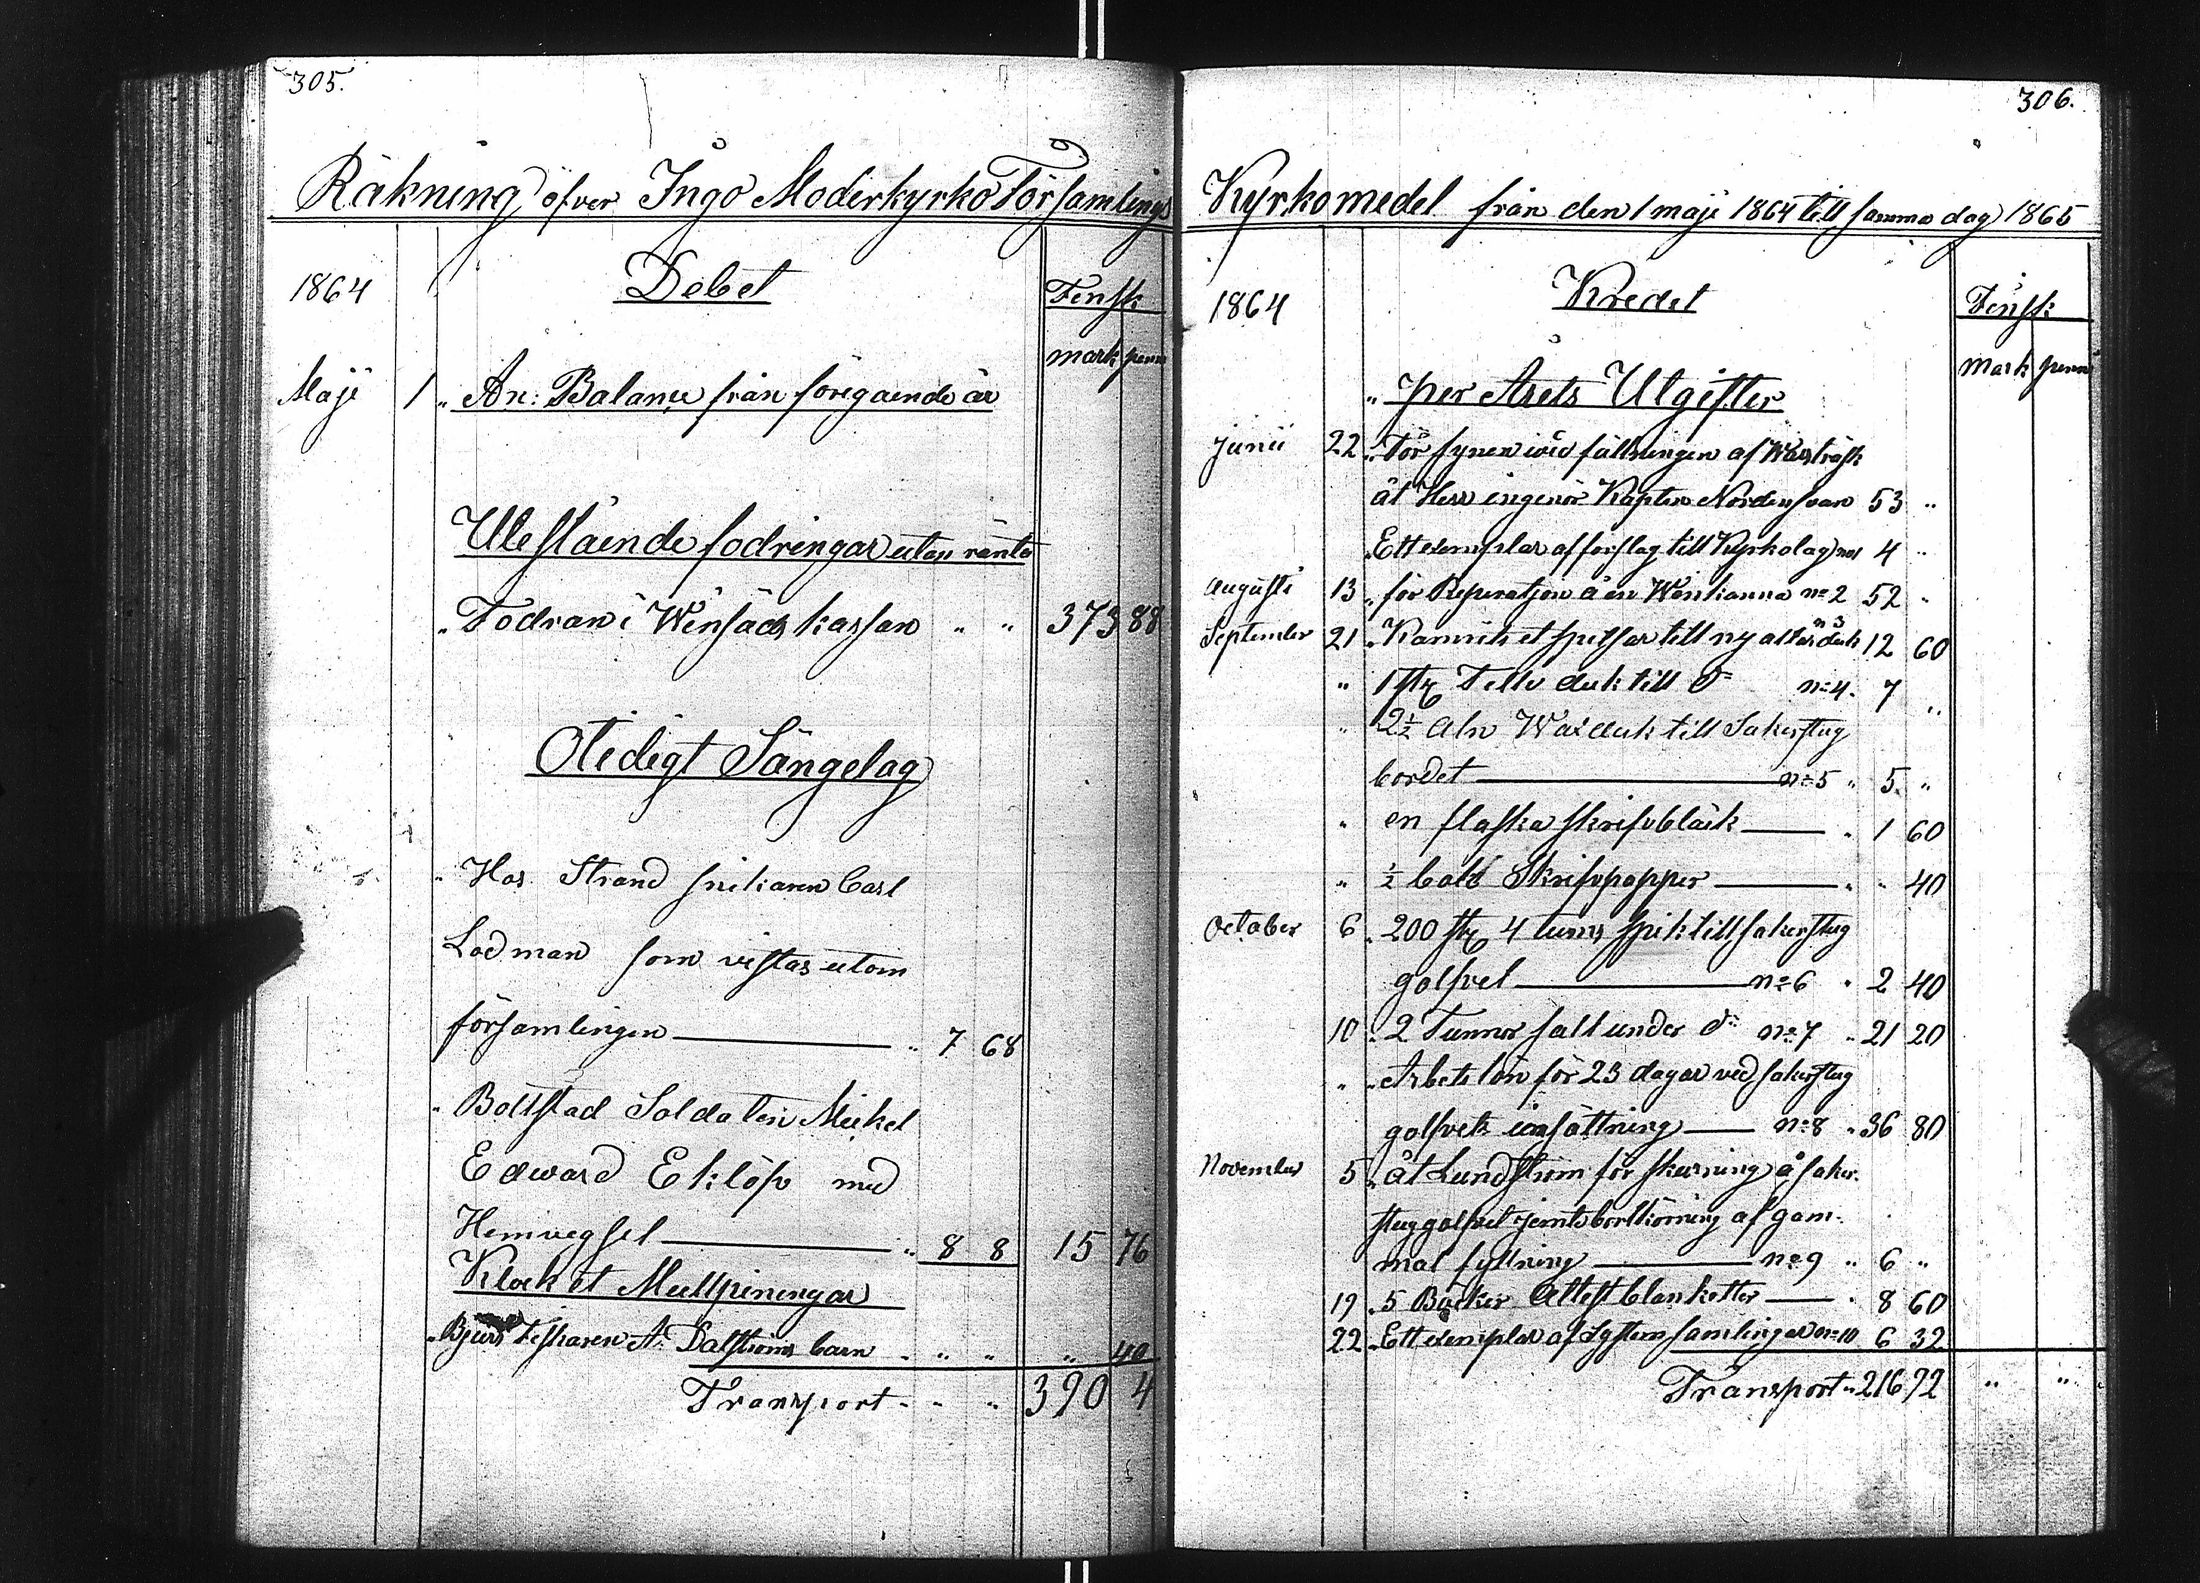 305.
Räkning öfver Ingo Moderkyrko Församlings
1864 Debet Finsk
mark penn
Maji 1 " An: Balance från föregaende år
Utestäende fodringar utan ränta
" Fodran i Winsäds kassan " " 373 88
Oledigt Sängelag
" Hos Strand fiskaren Carl
Lodman som vistas utom
församlingen " 7 68
" Bollstad Soldaten Mickel
Edward Eklöf med
Hemvegsel " 8 8 15 76
Klock et Mullpeningar
" Bjurs fiskaren A: Dalströms barn " " " " 40
Transport " " " 390 4
306.
Kyrkomedel från den 1 maji 1864 till samma dag 1865
1864 Kredet Finsk
mark penn
" per Årets Utgifter
Junii 22 " För synen wid fällningen af Wasträsk
åt Herr ingeniör Kapten Nordensvan 53 "
" Ett exemplar af förslag till Kyrkolag no1 4 "
Augusti 13 " för Reperatjon å en Winkanna no 2 52 "
September 21 " Kamrik et spitsar till ny altarduk no 3 12 60
" 1 st Fello duk till do no 4 7 "
" 2 1/2 Aln Waxduk till Sakerstug
bordet no 5 " 5 "
" en flaska skrifvbläck " 1 60
" 1/2 bok Skrifvpapper " " 40
October 6 " 200 st 4 tums spik till sakerstug
golfvet no 6 " 2 40
10 " 2 Tunnor salt under do no 7 " 21 20
" " Arbetslön för 23 dagar ved sakerstug
golfvets insättning no 8 " 36 80
November 5 " åt Lundström för skurning å saker-
stuggolfvet jemte bortkörning af gam-
mal fyllning no 9 " 6 "
19 " 5 Böcker Attestblanketter " 8 60
22 " Ett exemplar af samlingar no 10 6 32
Transport " 216 92 " "